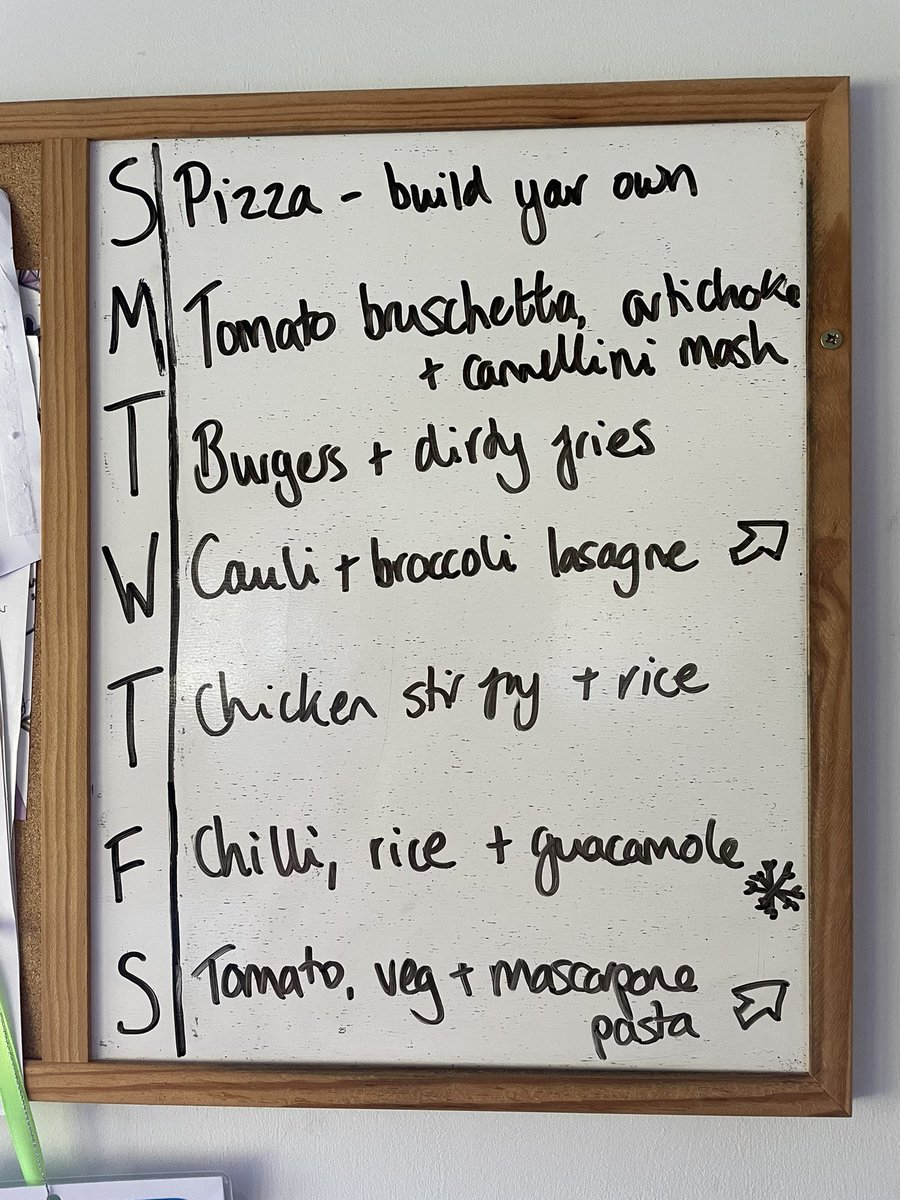 S Pizza - build your own
M Tomato bruschetta, artichoke
+ cannellini mash
T Burgers + dirty fries
W Cauli + broccoli lasagne
T Chicken stir fry + rice
F Chilli, rice + guacamole
S Tomato, veg + mascarpone
pasta